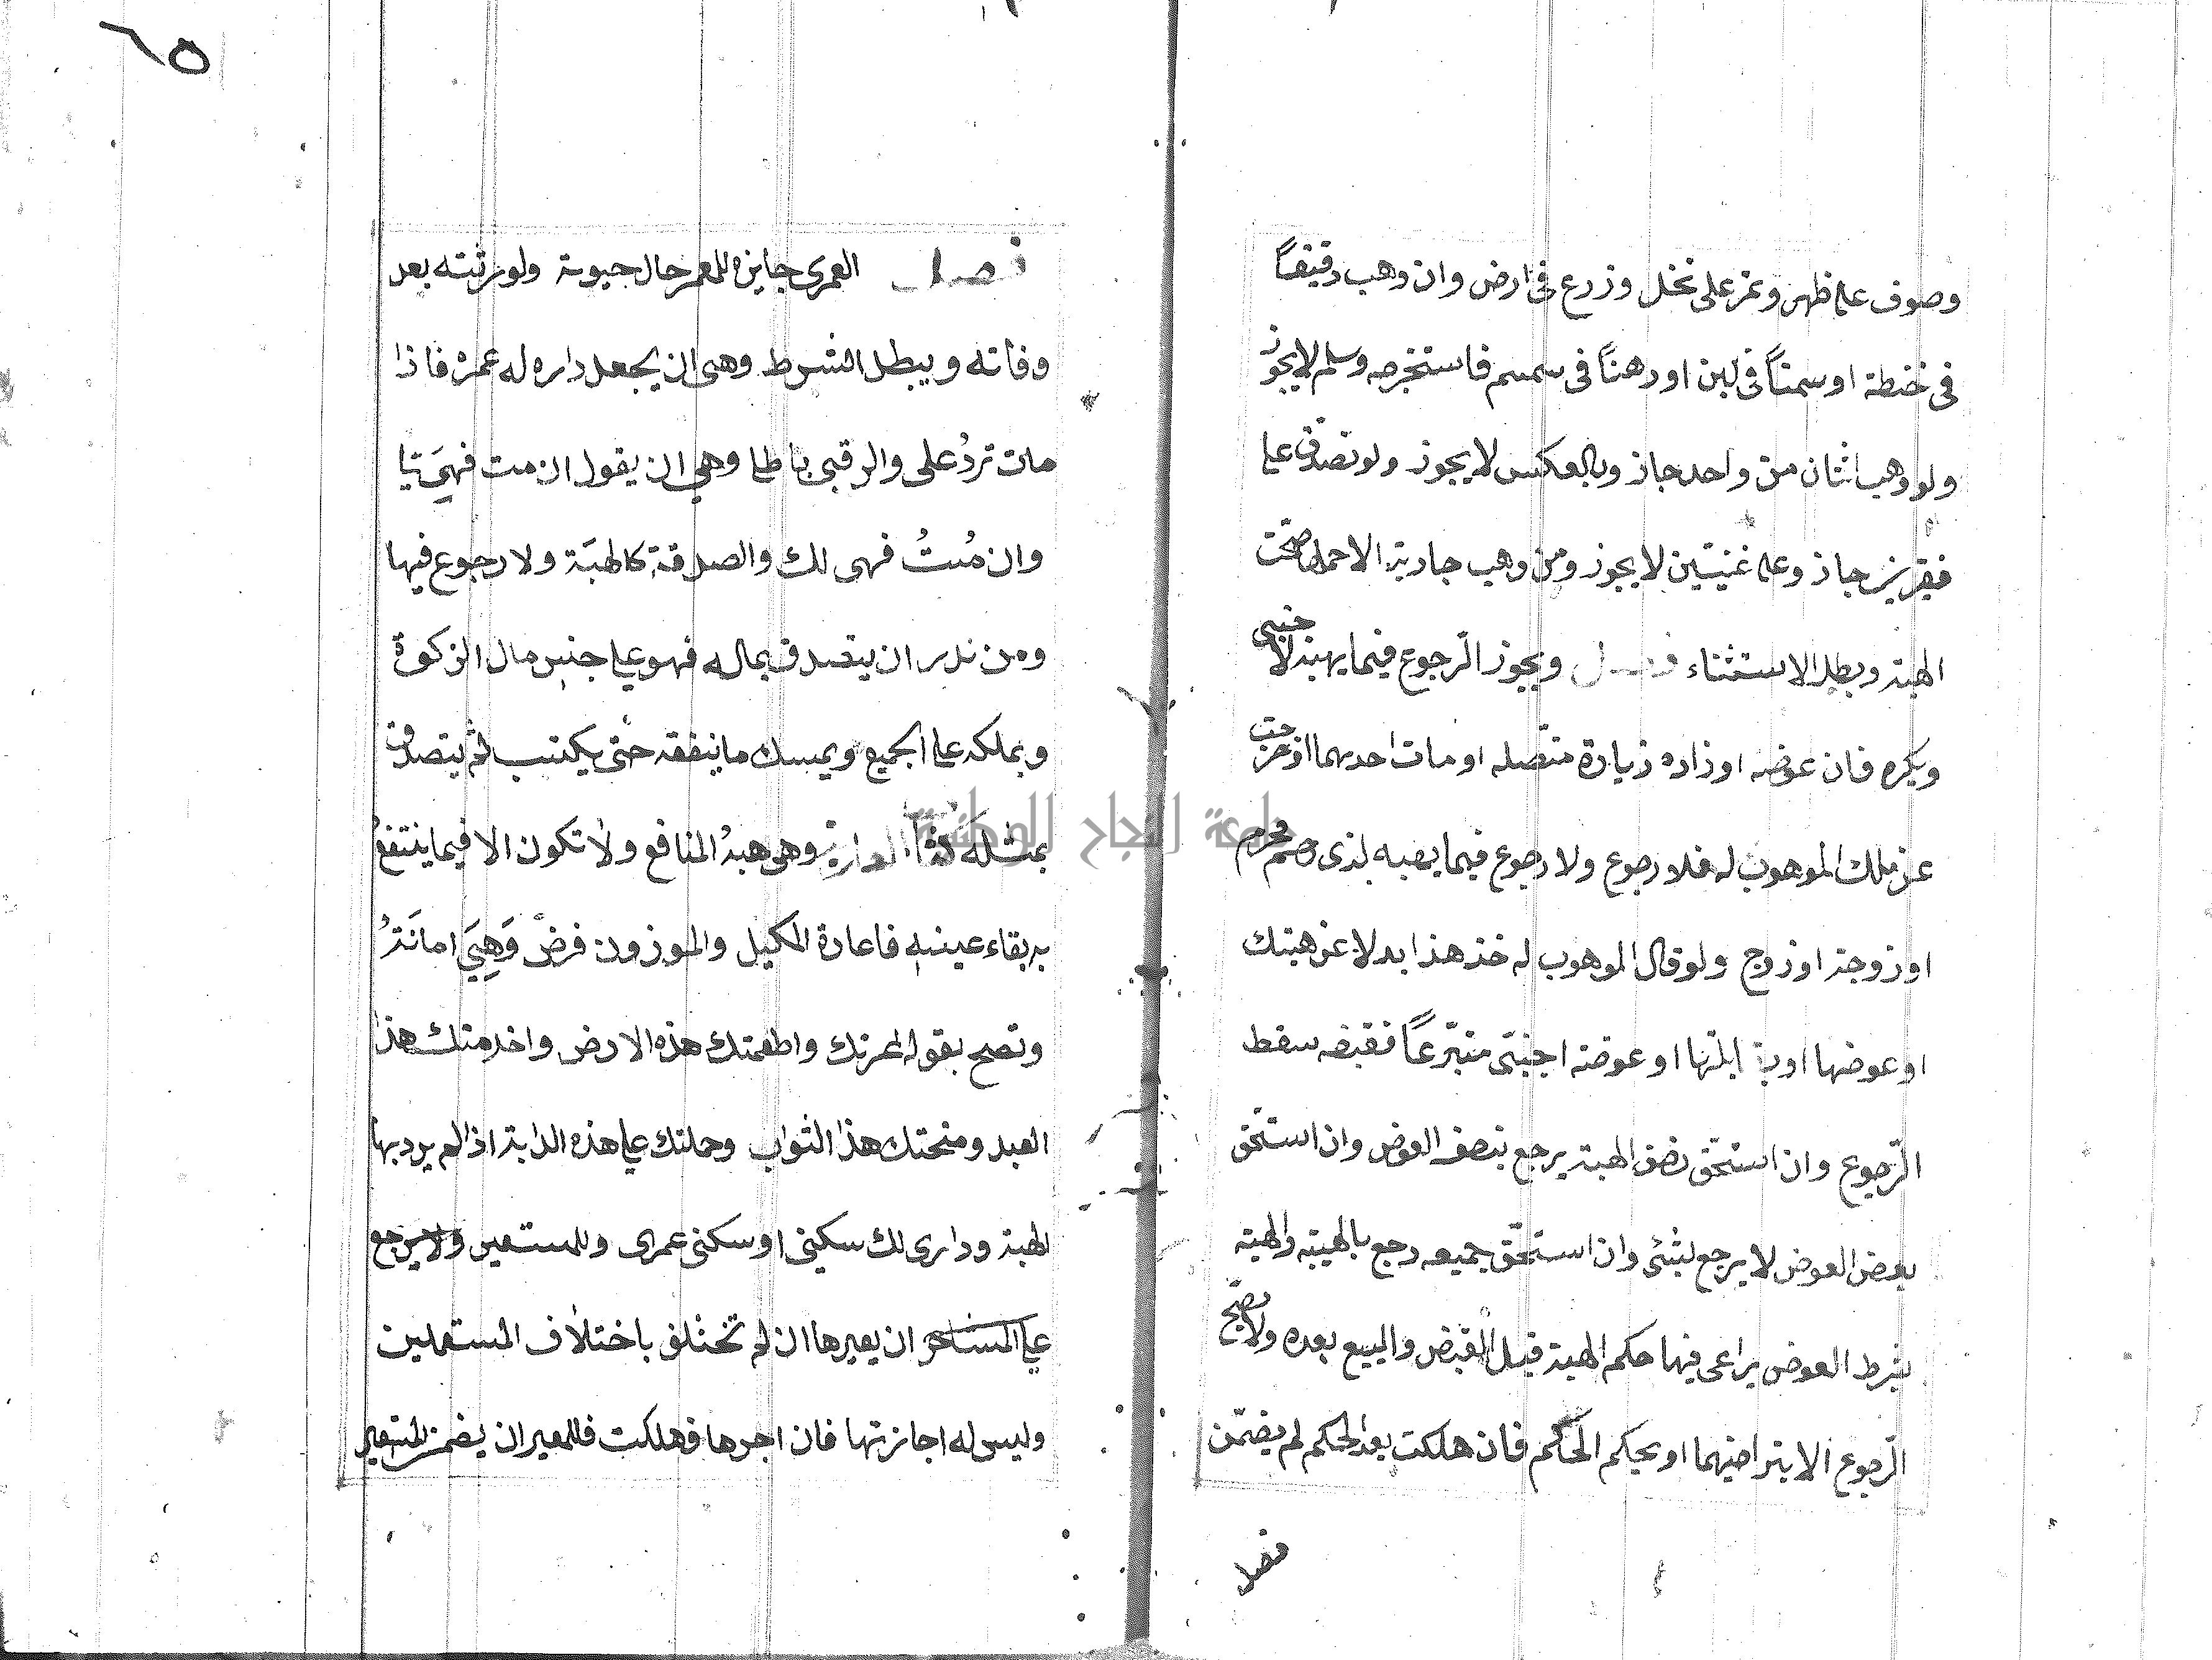 وصوف على ظهر وتمر على نخل وزرع فى ارض وان وهب دقيقاً
فى حنطة او سمناً فى لبن او دهناً فى سمسم فاستخرجه وسلم لا يجوز
ولو وهب اثنان من واحد جاز وبالعكس لا يجوز ولو تصدق على
فقيرين جاز وعلى غنيين لا يجوز ومن وهب جارية الا حملها صحت
الهبة وبطل الاستثناء فصل ويجوز الرجوع فيما يهبه لاجنبى
ويكره فان عوضه او زاده زيادة متصله او مات احدهما او خرجت
عن ملك الموهوب له فلا رجوع ولا رجوع فيما يهبه لذى رحم محرم
او زوجة او زوج ولو قال الموهوب له خذ هذا بدلا عن هبتك
او عوضها او مقابلتها او عوضه اجنبى متبرعاً فقبضه سقط
الرجوع وان استحق نصف الهبة يرجع بنصف العوض وان استحق
بعض العوض لا يرجع بشئ وان استحق جميعه رجع بالهبة والهبة
بشرط العوض يراعى فيها حكم الهبة قبل القبض والبيع بعده ولا يصح
الرجوع الا بتراضيهما او بحكم الحكم فان هلكت بعد الحكم لم يضمن
فصل
٦٥
فصل العمرى جايزه للمعمر حال حيوته ولورثته بعد
وفاته ويبطل الشرط وهى ان يجعل داره له عمره فاذا
مات تردُ على والرقبى باطلا وهي ان يقول ان مت فهيَ
وان مُتُ فهى لك والصدقة كالهبَة ولا رجوع فيها
ومن نذر ان يتصدق بماله فهو على جنس مال الزكوة
وبملكه على الجميع ويمسك ما ينفقه حتى يكتسب ثم يتصدق
بمثله وهى هبة المنافع ولا تكون الا فيما ينتفعُ
به بقاء عينه فاعارة المكيل والموزون قرضٌ وَهِيَ امانَةُ
وتصح بقوله اعرتك واطعمتك هذه الارض واخدمتك هذا
العبد ومنحتك هذا الثواب وحملتك على هذه الدابة اذا لم يرد بها
الهبة ودارى لك سكنى او سكنى عمرى وللمستعير ولا يرجع
على المستاجر ان يعيرها ان لم تختلف باختلاف المستعملين
وليس له اجازتها فان اجرها فهلكت فللمعير ان يضمن المستعير
جامعة النجاح الوطنية